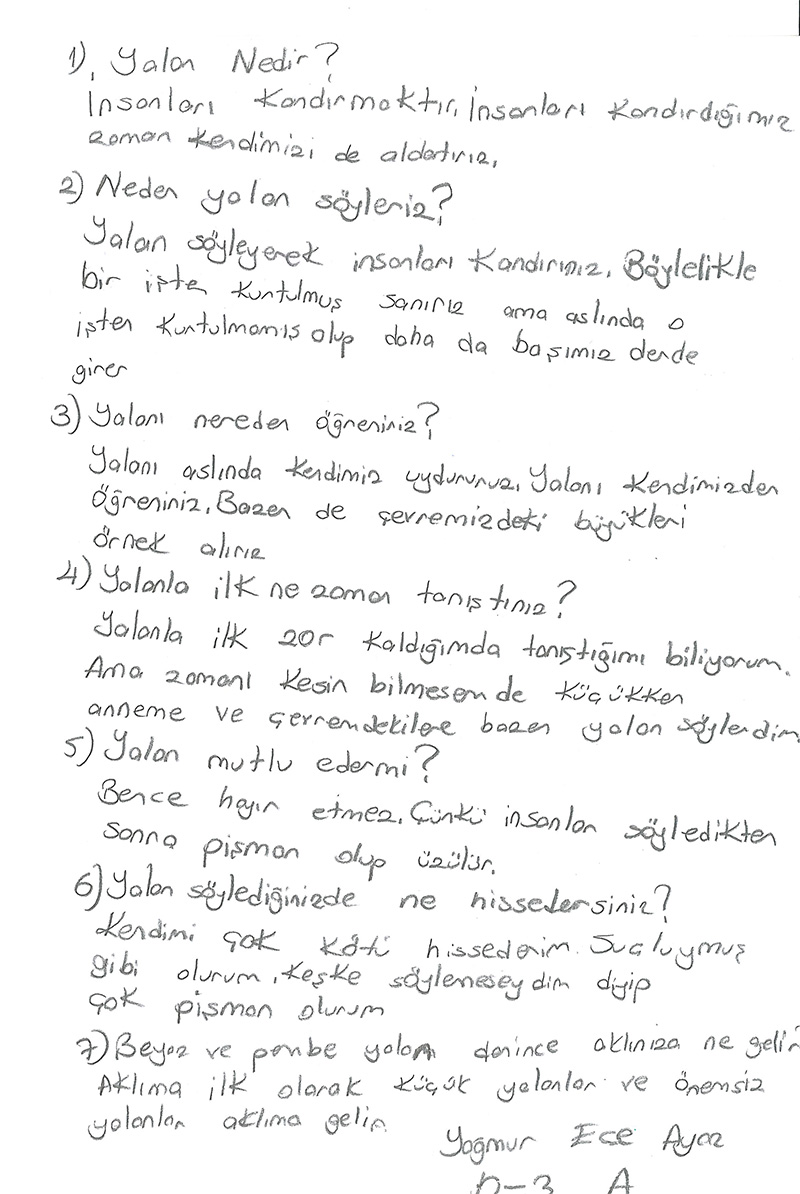 1), Yalan Nedir?
İnsanları Kandırmaktır, İnsanları Kandırdığımız
zaman kendimizi de aldatırız,
2) Neden yalan söyleriz?
Yalan söyleyerek insanları Kandırırız, Böylelikle
bir işten kurtulmuş sanırız ama aslında o
işten kurtulmamış olup daha da başımız derde
girer
3) Yalanı nereden öğreniriz?
Yalanı aslında kendimiz uydururuz, Yalanı kendimizden
öğreniriz, Bazen de çevremizdeki büyükleri
örnek alırız
4) Yalanla ilk ne zaman tanıştınız?
Yalanla ilk zor kaldığımda tanıştığımı biliyorum.
Ama zamanı kesin bilmesem de küçükken
anneme ve çevremdekilere bazen yalan söylerdim,
5) Yalan mutlu edermi?
Bence hayır etmez, Çünkü insanlar söyledikten
sonra pişman olup üzülür,
6) Yalan söylediğinizde ne hissedersiniz?
Kendimi çok kötü hissederim. Suçluymuş
gibi olurum, keşke söylemeseydim diyip
çok pişman olurum
7) Beyaz ve pembe yalan denince aklınıza ne gelir
Aklıma ilk olarak küçük yalanlar ve önemsiz
yalanlar aklıma gelir.
Yağmur Ece Ayaz
A